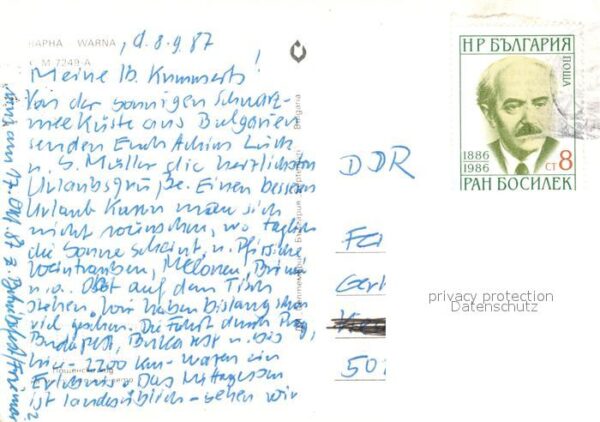 ВАРНА WARNA, d. 8.9.87
C M 7249-A
Meine lb. Kummerts!
Von der sonnigen Schwarz-
meeküste aus Bulgarien
senden Euch Achim
u. S. Müller die herzlichsten
Urlaubsgrüße. Einen besseren
Urlaub kann man sich
nicht wünschen, wo täglich
die Sonne scheint, u. Pfirsiche
Weintrauben, Melonen, Birnen
u.a. Obst auf dem Tisch
stehen. Wir haben bislang schon
viel gesehen. Die Fahrt durch Prag,
Budapest, Bukarest u. bis
hier - 2200 Km - waren ein
Erlebnis. Das Mittagessen
ist landesüblich - sehen wir
sind am 17.
87 z.
Bulgaria
DDR
Fa
Ger
501
НР БЪЛГАРИЯ
ПОЩА
1886
1986
СТ 8
РАН БОСИЛЕК
privacy protection
Datenschutz